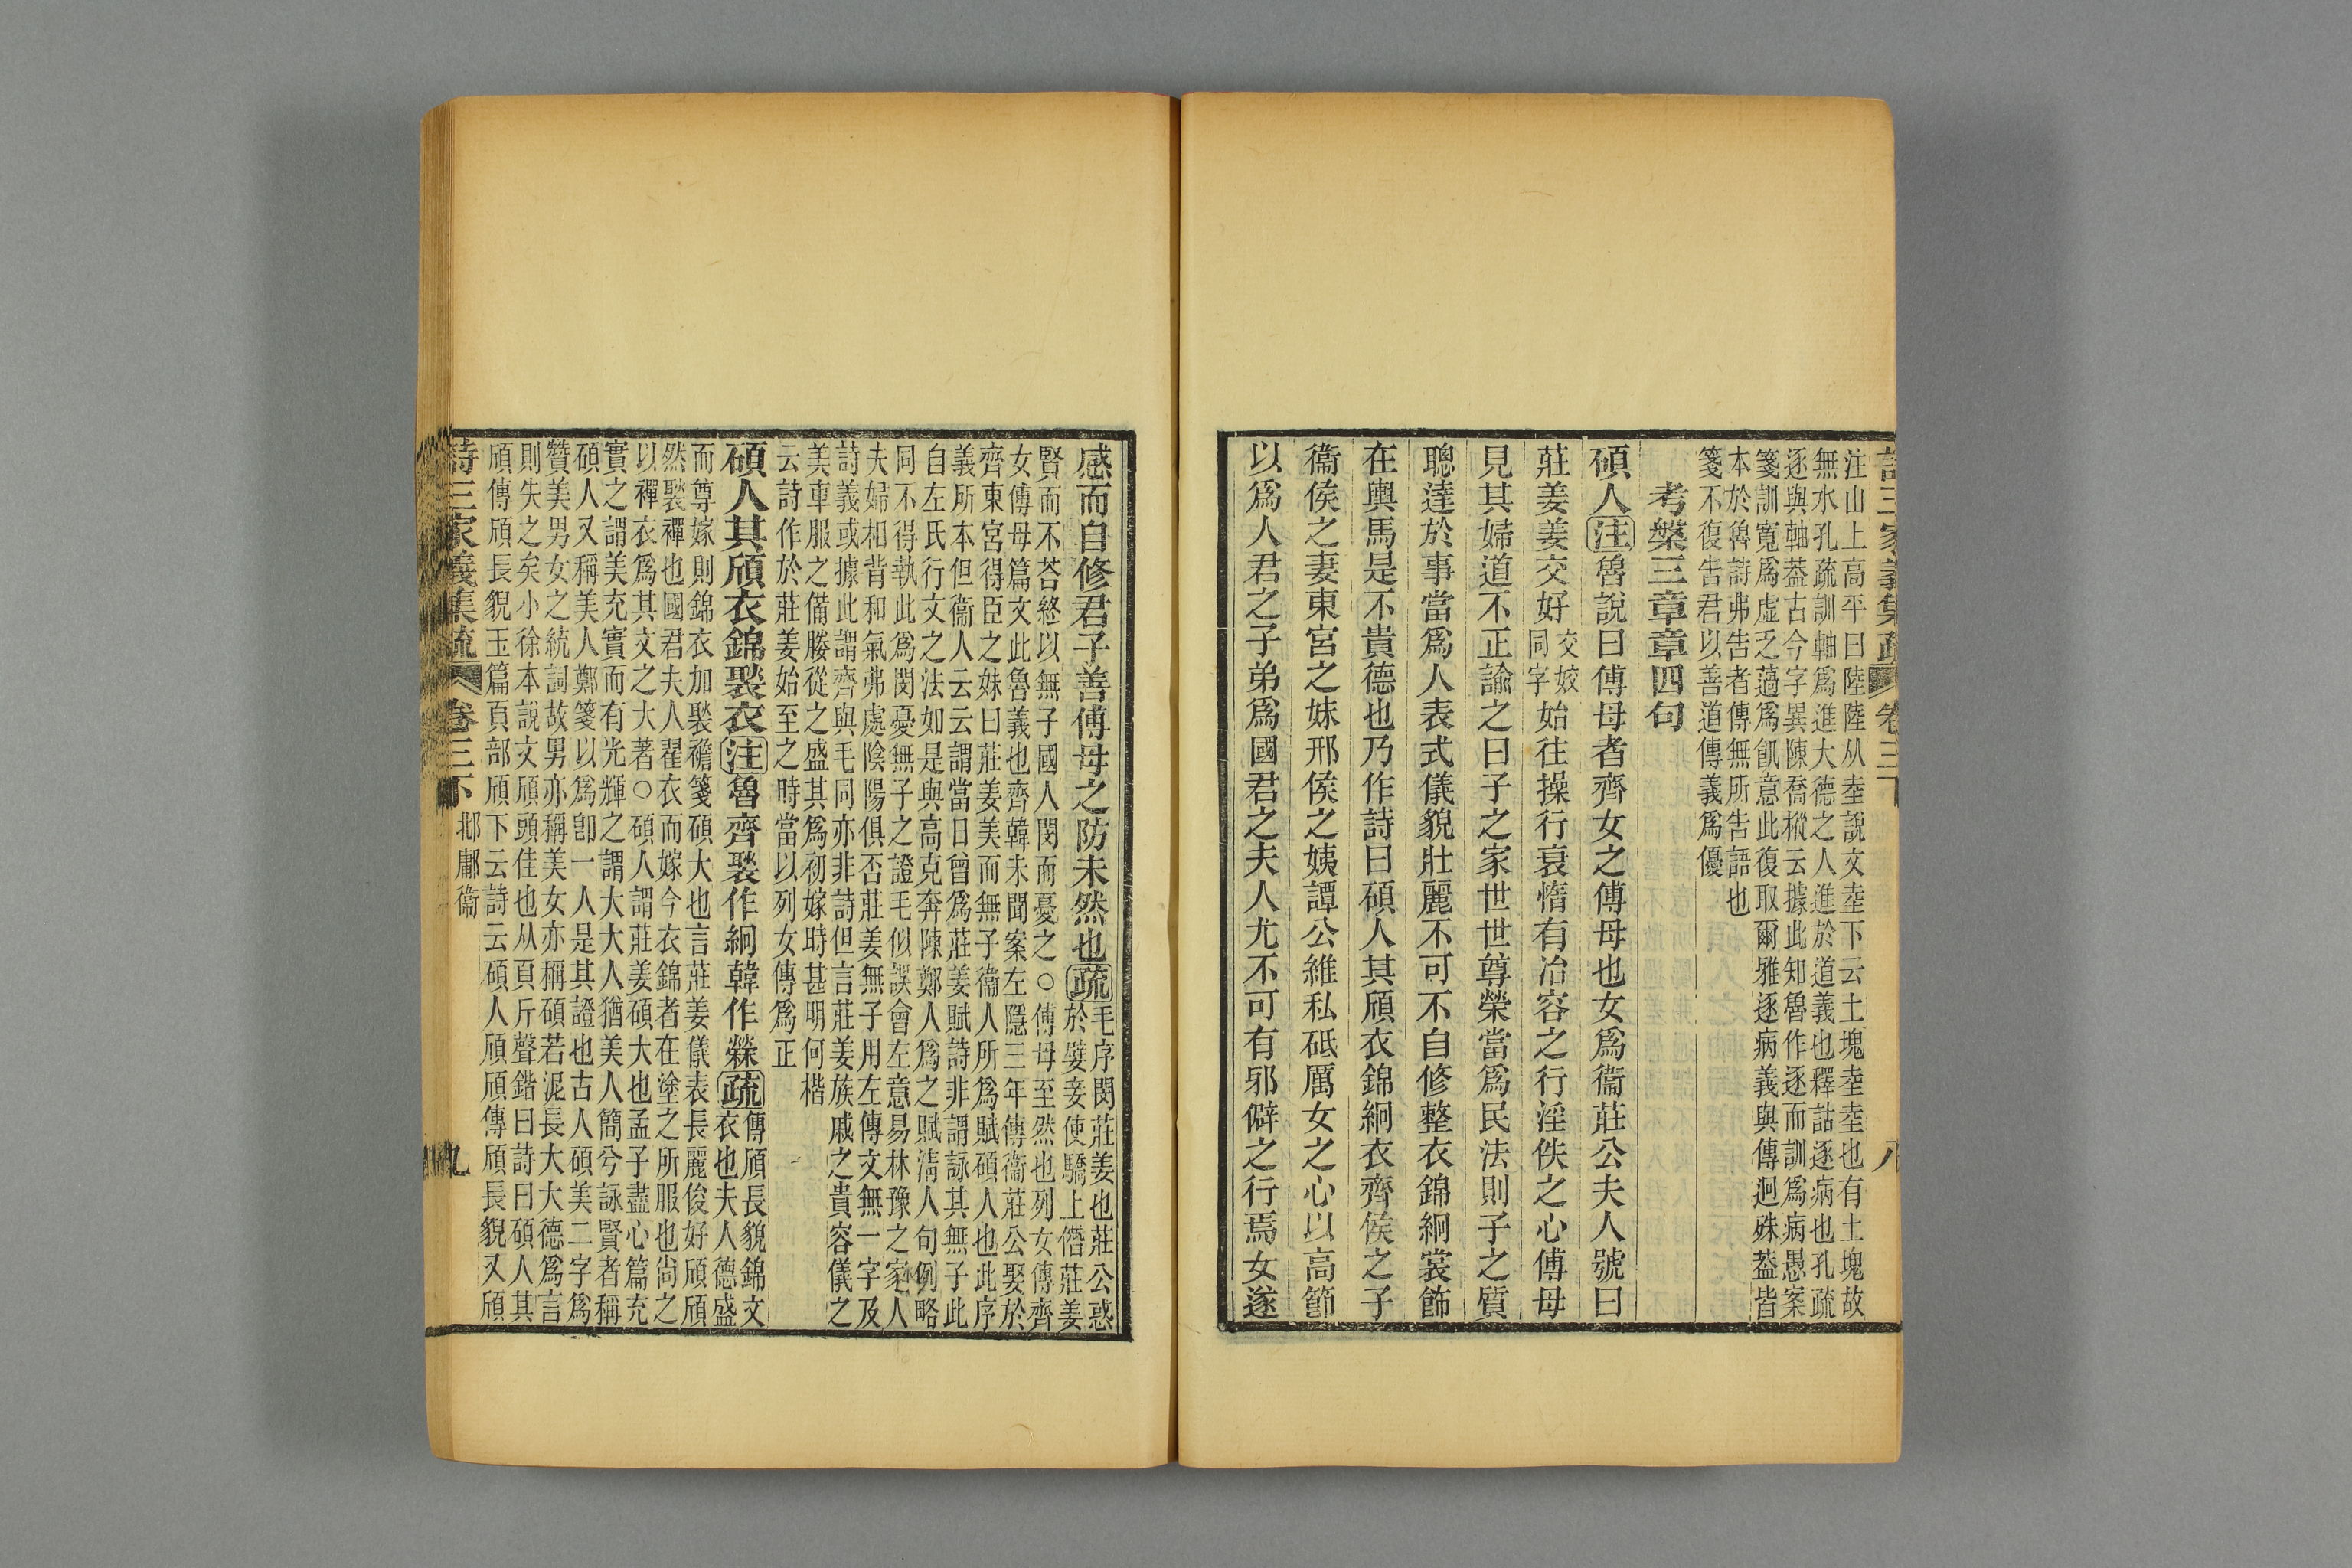 詩三家義集疏 卷三下 八
注山上高平曰陸陸从坴說文坴下云土塊坴坴也有土塊故
無水孔疏訓軸爲進大德之人進於道義也釋詁逐病也孔疏
逐與軸葢古今字異陳喬樅云據此知魯作逐而訓爲病愚案
箋訓寬爲虛乏薖爲飢意此復取爾雅逐病義與傳迥殊葢皆
本於魯詩弗告者傳無所告語也
箋不復告君以善道傳義爲優
考槃三章章四句
碩人注魯說曰傅母者齊女之傅母也女爲衞莊公夫人號曰
莊姜姜交好交姣同字始往操行衰惰有冶容之行淫佚之心傅母
見其婦道不正諭之曰子之家世世尊榮當爲民法則子之質
聰達於事當爲人表式儀貌壯麗不可不自修整衣錦絅裳飾
在輿馬是不貴德也乃作詩曰碩人其頎衣錦絅衣齊侯之子
衞侯之妻東宮之妹邢侯之姨譚公維私砥厲女之心以高節
以爲人君之子弟爲國君之夫人尤不可有邪僻之行焉女遂
感而自修君子善傅母之防未然也疏毛序閔莊姜也莊公惑
於嬖妾使驕上僭莊姜
賢而不荅終以無子國人閔而憂之○傅母至然也列女傳齊
女傅母篇文此魯義也齊韓未聞案左隱三年傳衞莊公娶於
齊東宮得臣之妹曰莊姜美而無子衞人所爲賦碩人也此序
義所本但衞人云云謂當日曾爲莊姜賦詩非謂詠其無子此
自左氏行文之法如是與高克奔陳鄭人爲之賦淸人句例略
同不得執此爲閔憂無子之證毛似誤會左意易林豫之家人
夫婦相背和氣弗處陰陽俱否莊姜無子用左傳文無一字及
詩義或據此謂齊與毛同亦非詩但言莊姜族戚之貴容儀之
美車服之備媵從之盛其爲初嫁時甚明何楷
云詩作於莊姜始至之時當以列女傳爲正
碩人其頎衣錦褧衣注魯齊褧作絅韓作檾疏傳頎長貌錦文
衣也夫人德盛
而尊嫁則錦衣加褧襜箋碩大也言莊姜儀表長麗俊好頎頎
然褧襌也國君夫人翟衣而嫁今衣錦者在塗之所服也尙之
以襌衣爲其文之大著○碩人謂莊姜碩大也孟子盡心篇充
實之謂美充實而有光輝之謂大大人猶美人簡兮詠賢者稱
碩人又稱美人鄭箋以爲卽一人是其證也古人碩美二字爲
贊美男女之統詞故男亦稱美女亦稱碩若泥長大大德爲言
則失之矣小徐本說文頎頭佳也从頁斤聲鍇曰詩曰碩人其
頎傳頎長貌玉篇頁部頎下云詩云碩人頎頎傳頎長貌又頎
詩三家義集疏 卷三下 邶鄘衞 九